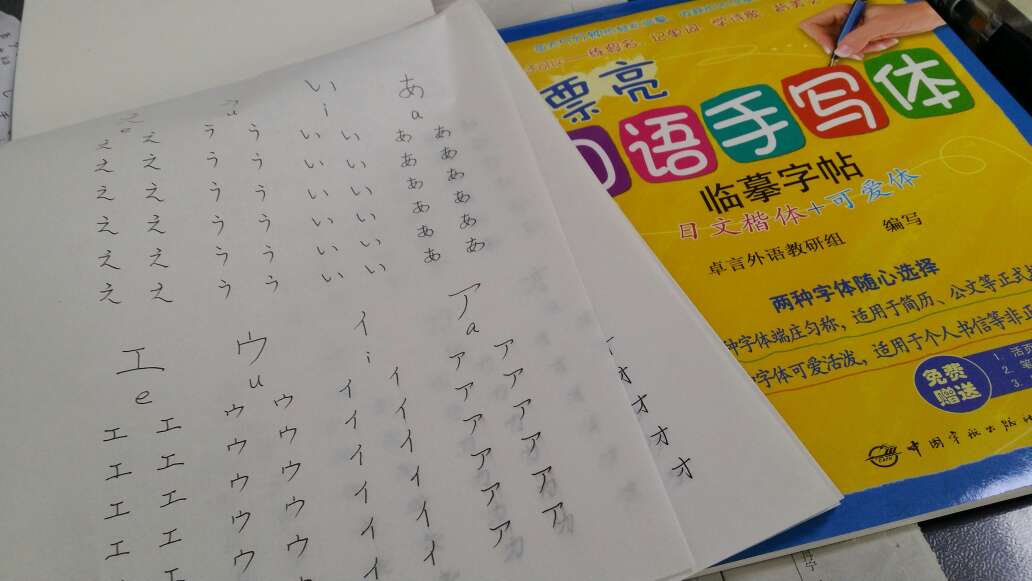 あ
a
ああああああ
ああああああ
い
i
いいいいいい
いいいいいい
う
u
うううううう
うううううう
え
e
ええええええ
ええええええ
ア
a
アアアアアア
アアアアアア
イ
i
イイイイイイ
イイイイイイ
ウ
u
ウウウウウ
ウウウウウ
エ
e
エエエエエ
エエエエ
オオオオ
漂亮
日语手写体
临摹字帖
日文楷体+可爱体
卓言外语教研组 编写
两种字体随心选择
种字体端庄匀称，适用于简历、公文等正式
字体可爱活泼，适用于个人书信等非正
免费
赠送
1. 活页
2. 笔
3.
中国宇航出版